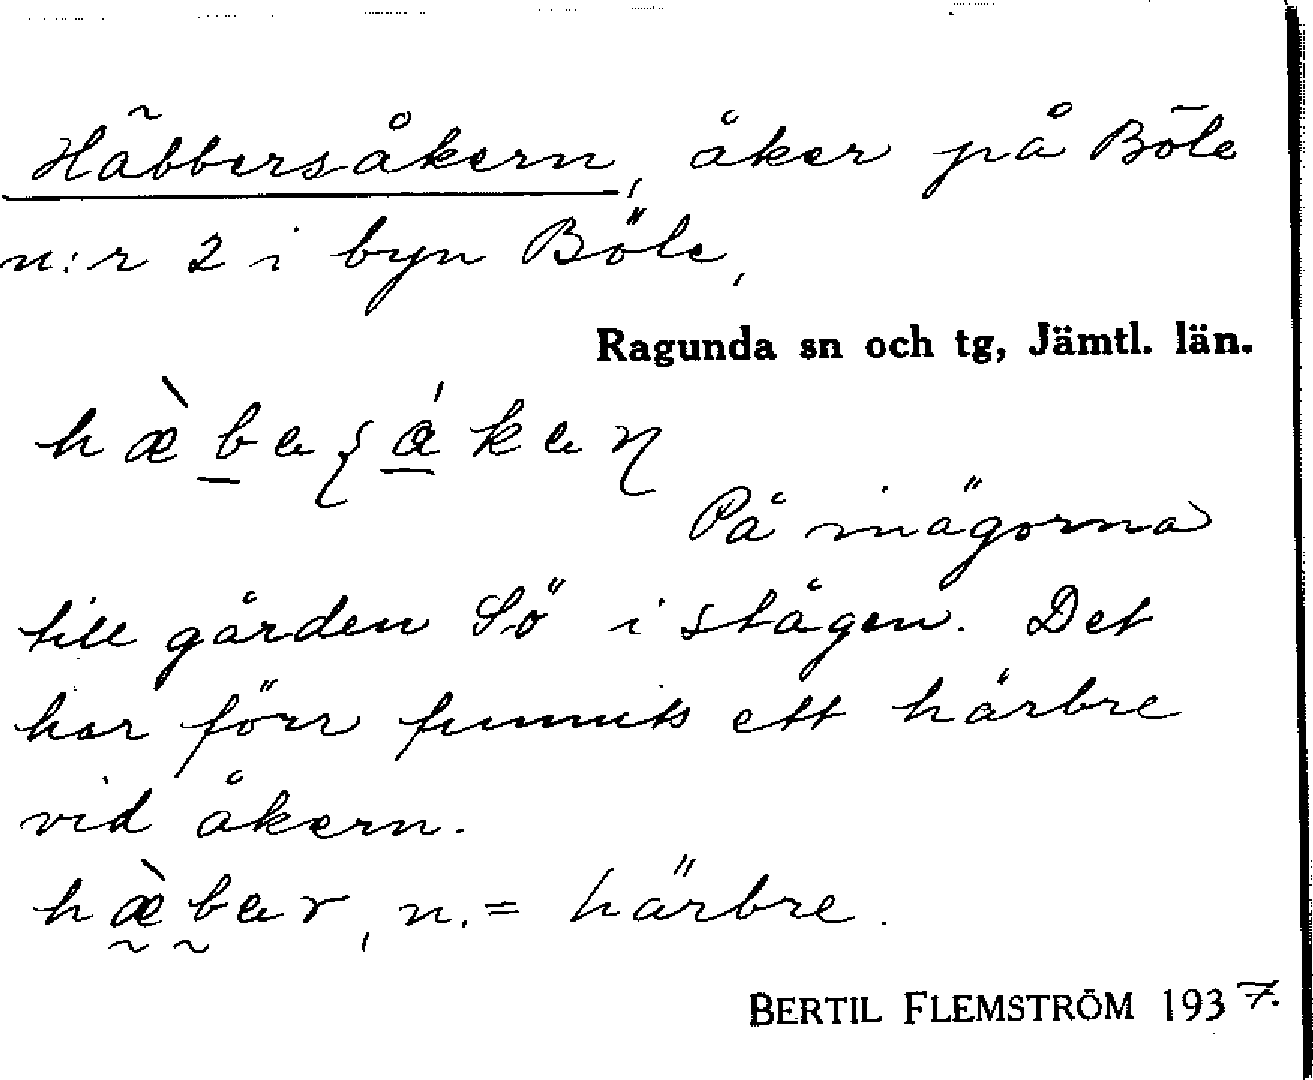 Häbbersåkern, åker på Böle
n:r 2 i byn Böle,
Ragunda sn och tg, Jämtl. län.
På inägorna
till gården Sö i stågen. Det
har förr funnits ett härbre
vid åkern.
hæ̀bar, n. = härbre.
BERTIL FLEMSTRÖM 1937.